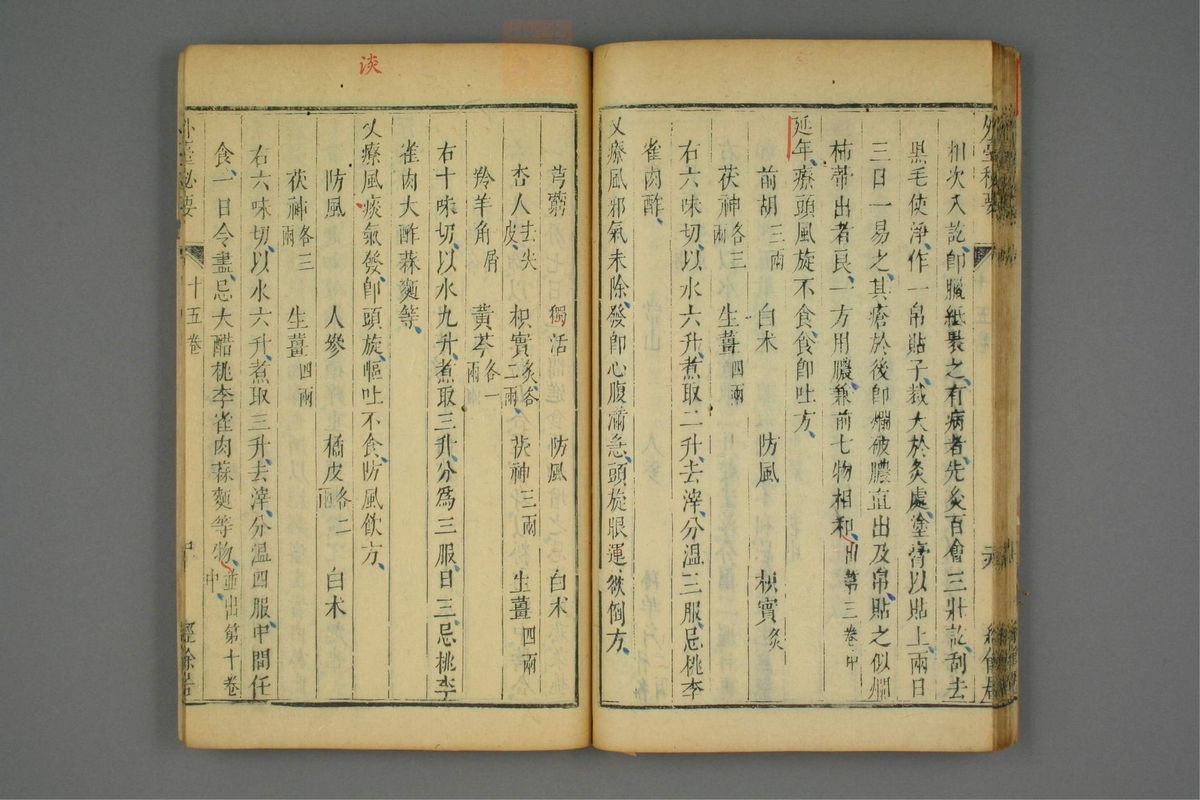 外臺秘要
相次入訖卽臘紙裹之有病者先灸百會三壯訖刮去
黑毛使淨作一帛貼子裁大於灸處塗膏以貼上兩日
三日一易之其瘡於後卽爛破膿直出及帛貼之似爛
柿蔕出者良一方用膿兼前七物相和出第三卷中
延年療頭風旋不食食卽吐方
前胡三兩 白术 防風 枳實炙
茯神各三兩 生薑四兩
右六味切以水六升煮取二升去滓分溫三服忌桃李
雀肉酢
又療風邪氣未除發卽心腹滿急頭旋眼運欲倒方
淡
芎藭 獨活 防風 白术
杏人去尖皮 枳實炙各二兩 茯神三兩 生薑四兩
羚羊角屑 黃芩各一兩
右十味切以水九升煮取三升分爲三服日三忌桃李
雀肉大酢蒜麵等
又療風痰氣發卽頭旋嘔吐不食防風飲方
防風 人參 橘皮各二兩 白术
茯神各三兩 生薑四兩
右六味切以水六升煮取三升去滓分溫四服中間任
食一日令盡忌大醋桃李雀肉蒜麵等物並出第十卷中
外臺秘要 十五卷 經餘居